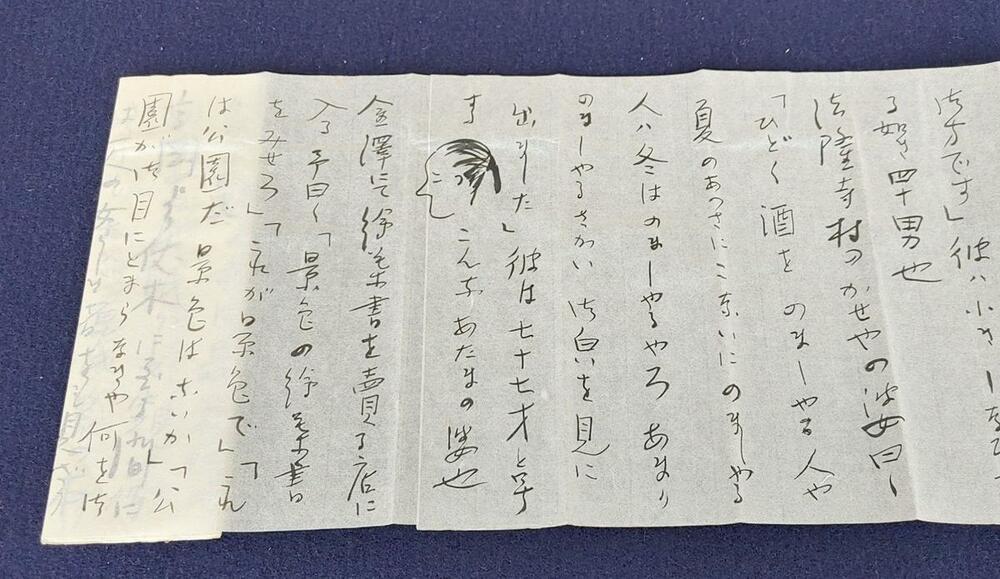 御方です」彼ハ小さ
る如き四十男也
法隆寺村のかせやの婆曰く
「ひどく酒をのまーやる人や
夏のあつさにこないにのましやる
人ハ冬はのましやるやろあまり
のましやるさかい御白いを見に
出ました」彼は七十七才と早
す こんなあたまの婆也
金澤にて繪葉書を賣る店に
入る 予曰く「景色の繪葉書
をみせろ」「これが景色で」「これ
は公園だ 景色はないか」「公
園が御目にとまらなきや何を御